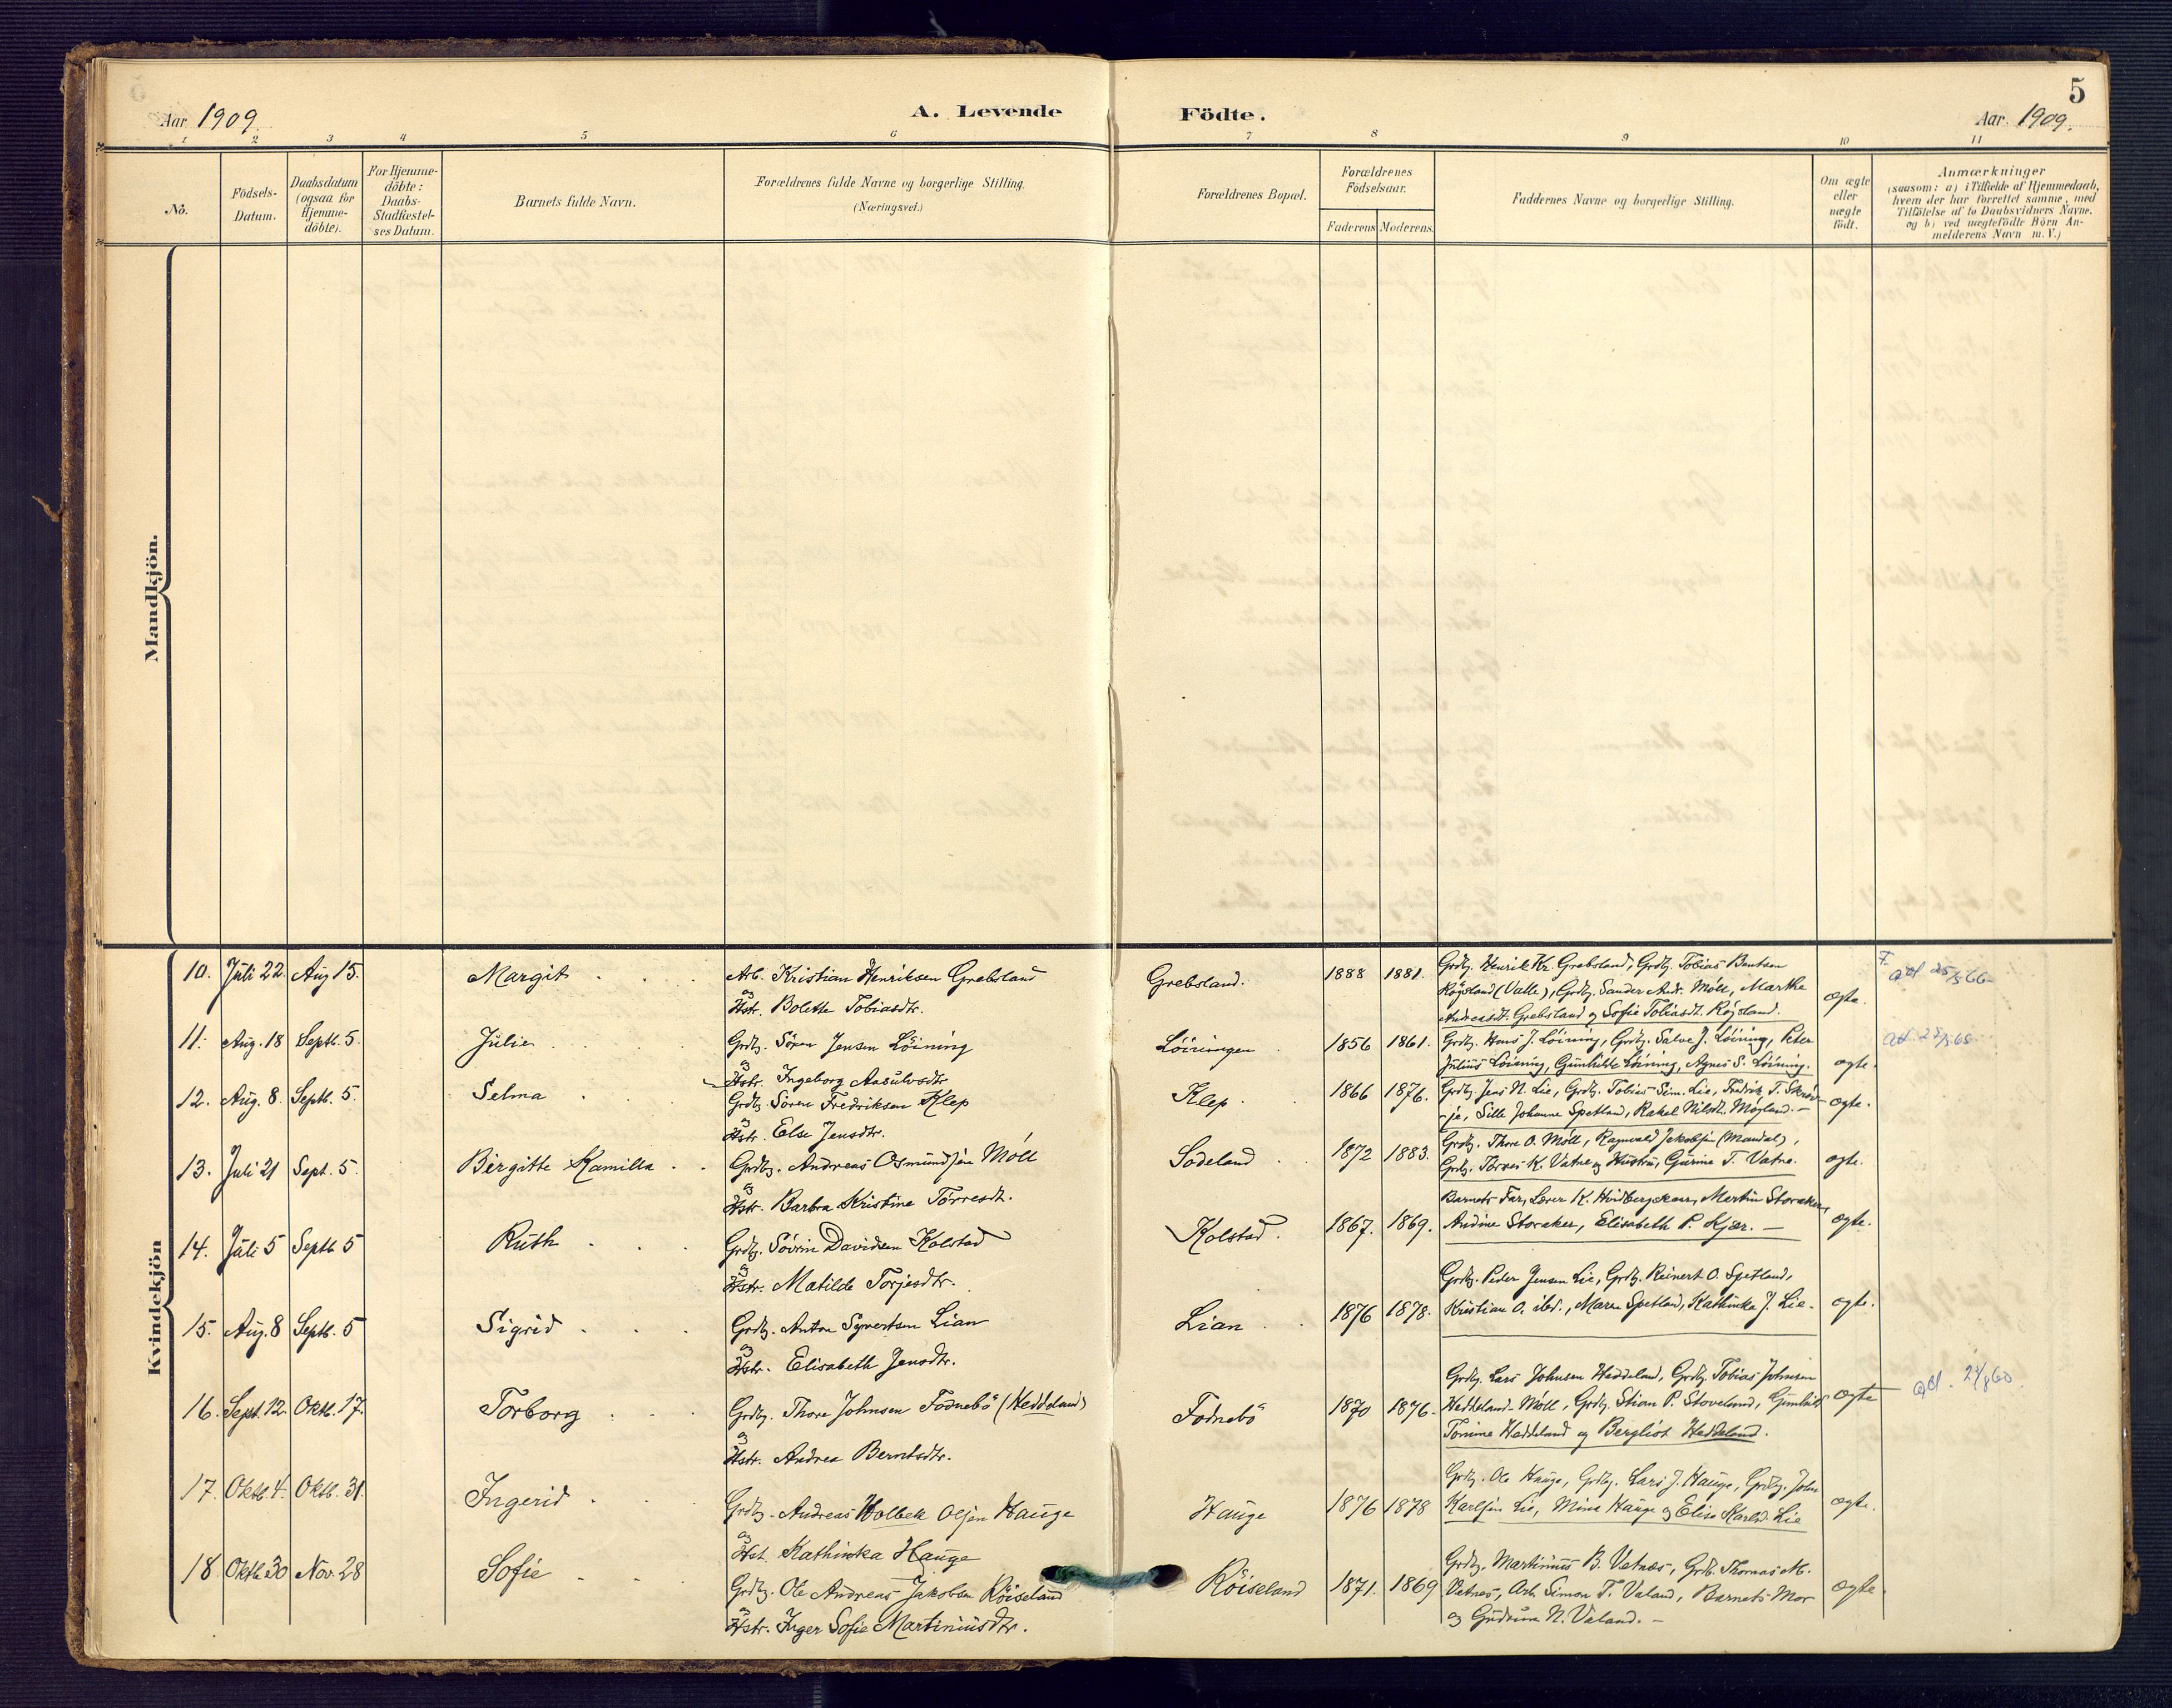 5
Aar 1909.
A. Levende Födte.
Aar 1909.
1 2 3 4 5 6 7 8 9 10 11
No.
Födsels-
Datum.
Daabsdatum
(ogsaa for
Hjemme-
döbte).
For Hjemme-
döbte:
Daabs-
Stadfæstel-
ses Datum.
Barnets fulde Navn.
Forældrenes fulde Navne og borgerlige Stilling.
(Næringsvei.)
Forældrenes Bopæl.
Forældrenes
Födselsaar.
Faderens Moderens.
Faddernes Navne og borgerlige Stilling.
Om ægte
eller
uægte
födt.
Anmærkninger
(saasom: a) i Tilfælde af Hjemmedaab,
hvem der har forrettet samme, med
Tilföielse af to Daabsvidners Navne,
og b) ved uægtefödte Börn An-
melderens Navn m. V.)
Mandkjön.
Kvindekjön
10. Juli 22. Aug 15. Margit
Arb. Kristian Henriksen Grebsland
og
Hstr. Bolette Tobiasdtr.
Grebsland. 1888 1881.
Grdbr. Henrik Kr. Grebsland, Grdbr. Tobias Bentsen
Röysland (Valle), Grdbr. Sander Andr. Möll, Marthe
Andreasdt. Grebsland og Sofie Tobiasdt. Röjsland.
ægte.
F.
att 25/5 66
11. Aug. 18 Septb. 5. Julie
Grdbr. Sören Jensen Löining
og
Hstr. Ingeborg Aasulvsdtr
Löiningen 1856 1861.
Grdbr. Hans J. Löining, Grdbr. Salve J. Löining, Peter
Julius Löining, Gunhilde Löining, Agnes S. Löining.
ægte.
12. Aug. 8. Septb. 5. Selma
Grdbr. Sören Fredriksen Klep
og
Hstr. Else Jensdtr.
Klep. 1866 1876.
Grdbr. Jens N. Lie, Grdbr. Tobias Sim. Lie, Fredrik T.
-je, Sille Johanne Spetland, Rakel Nilsdt. Möyland. –
ægte.
13. Juli 21 Sept. 5. Birgitte Kamilla
Grdbr. Andreas Osmundsen Möll
og
Hstr. Barbra Kristine Törresdt.
Sodeland 1872 1883.
Grdbr. Thore O. Möll, Ragnvald Jakobsen (Mandal),
Grdbr. Torres K. Vatne og Hustru, Gurine T. Vatne.
ægte.
14. Juli 5 Septb 5 Ruth
Grdbr. Sövrin Davidsen Kolstad
og
Hstr. Matilde Torjesdtr.
Kolstad. 1867. 1869.
Barnets Far, Lærer K. Hvidbergskaar, Martin Storaker,
Andine Storaker, Elisabeth P. Kjær. –
ægte.
15. Aug. 8 Septb. 5 Sigrid
Grdbr. Anton Syvertsen Lian
og
Hstr. Elisabeth Jensdtr.
Lian 1876 1878.
Grdbr. Peder Jensen Lie, Grdbr. Reinert O. Spetland,
Kristian O. ibd., Maren Spetland, Kathinka J. Lie.
ægte.
16. Sept. 12. Oktb. 17. Torborg
Grdbr. Thore Johnsen Fodnebö (Heddeland)
og
Hstr. Andrea Berntsdtr.
Fodnebö 1870 1876.
Grdbr. Lars Johnsen Heddeland, Grdbr. Tobias Johnsen
Heddeland-Möll, Grdbr. Stian P. Stoveland, Gunhild
Tomine Heddeland og Bergliot Heddeland.
ægte
17. Oktb. 4. Oktb. 31. Ingerid
Grdbr. Andreas Holbek Olsen Hauge
og
Hst. Kathinka Hauge
Hauge 1876 1878
Grdbr. Ole Hauge, Grdbr. Lars J. Hauge, Grdbr. John
Karlsen Lie, Mina Hauge og Elise Karlsd. Lie
ægte.
18. Oktb 30 Nov. 28 Sofie
Grdbr. Ole Andreas Jakobsen Röiseland
og
Hstr. Inger Sofie Martiniusdtr.
Röiseland 1871. 1869
Grdbr. Martinius B. Vatnes, Grdb. Thomas M.
Vatnes, Arb. Simon T. Valand, Barnets Mor
og Gudrun N. Valand. –
ægte.